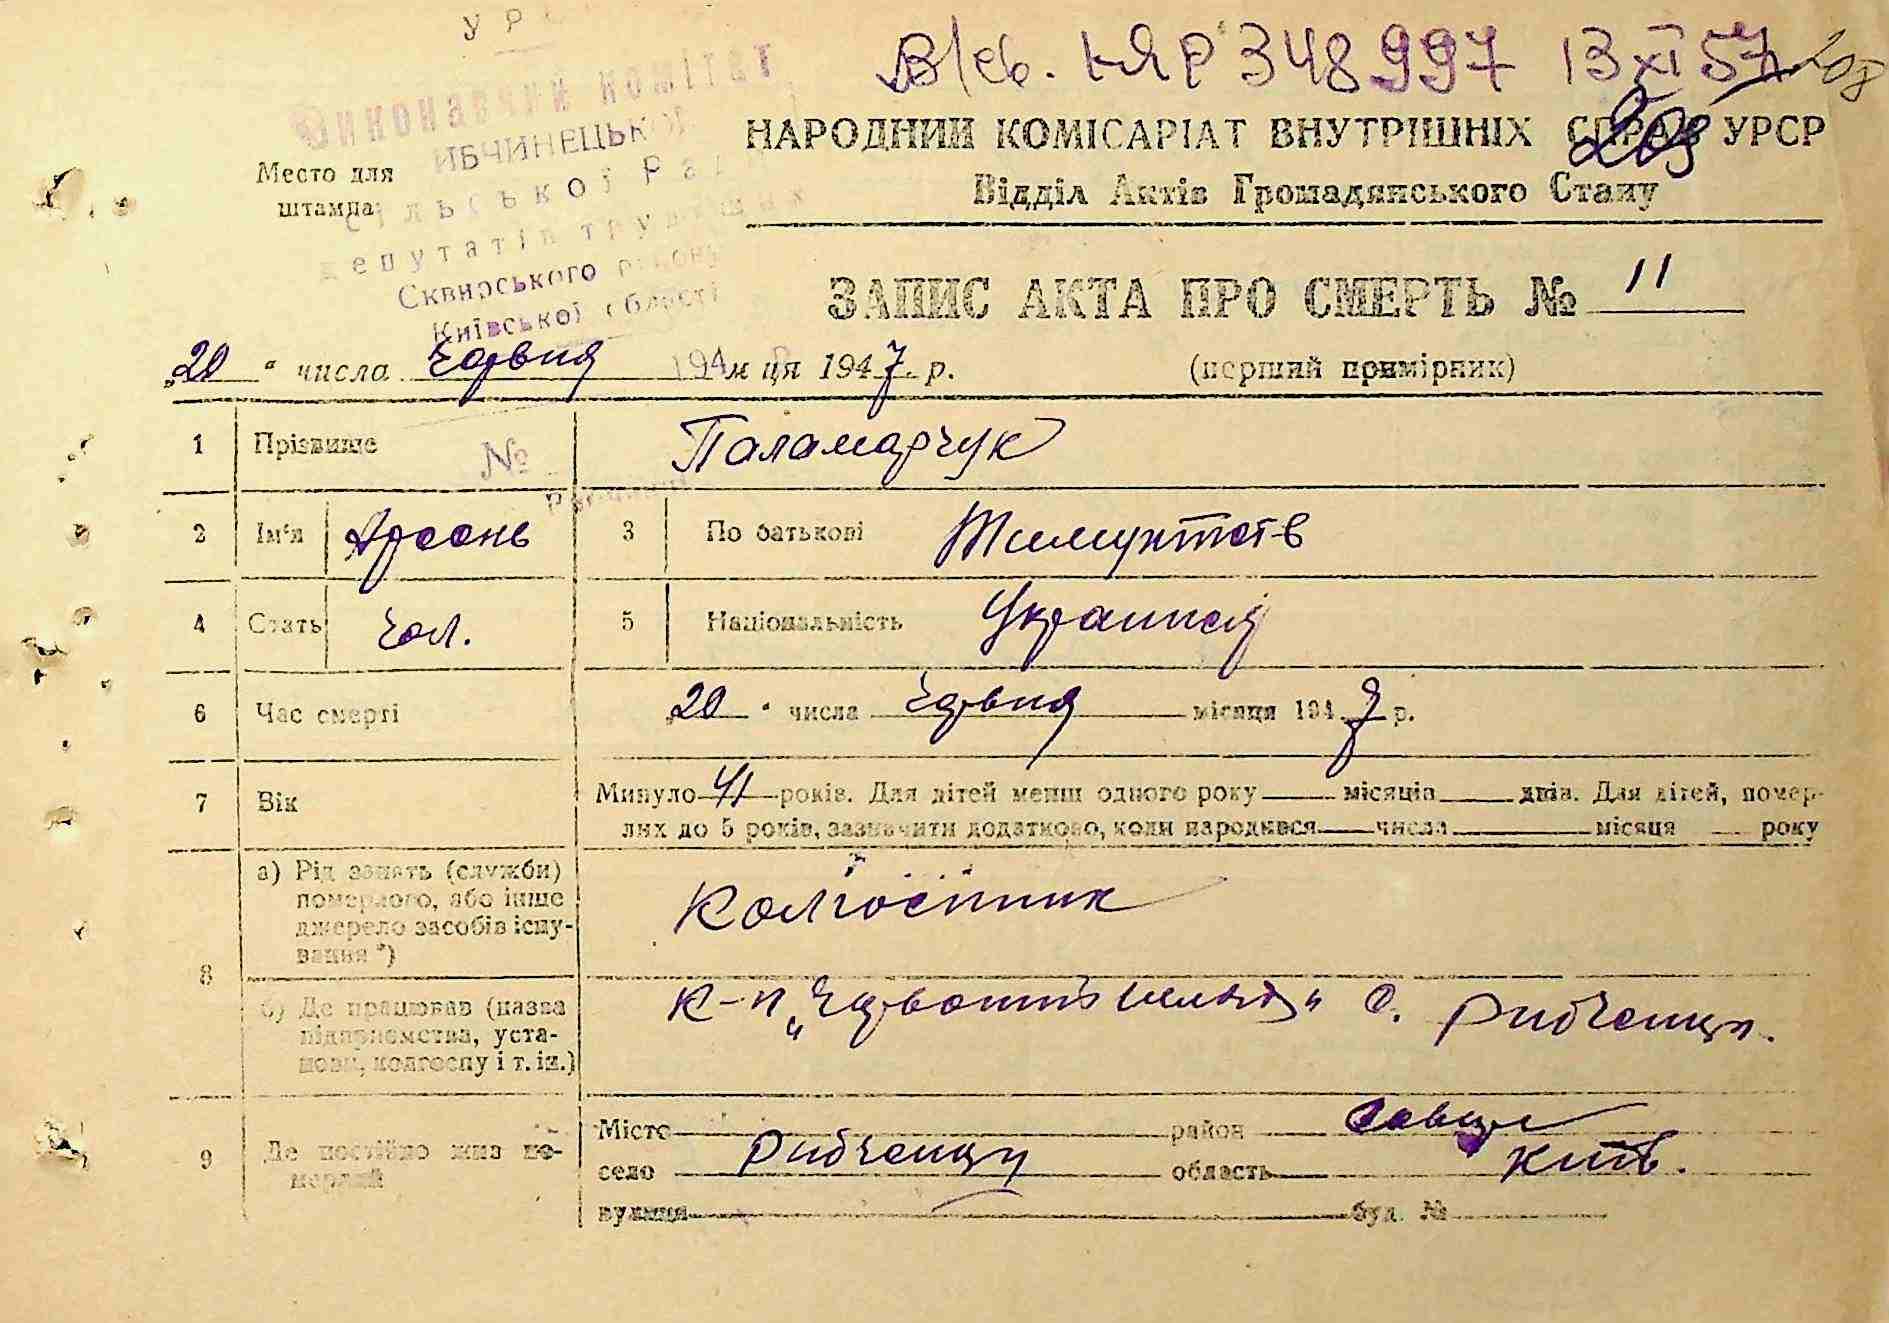 УР
В/св. ІЯР 348997 13 XI 57 208
Виконавчий комітет
203
НАРОДНИЙ КОМІСАРІАТ ВНУТРІШНІХ СПРАВ УРСР
ИБЧИНЕЦЬКОЇ
Место для штампа
ільської Ра
Відділ Актів Громадянського Стану
депутатів трудящих
Сквирського району
Київської області
ЗАПИС АКТА ПРО СМЕРТЬ № 11
„20" числа Червня 194 м ця 1947 р. (перший примірник)
1 Прізвище Паламарчук
№
2 Ім'я Арсень 3 По батькові Тимухтеєв
4 Стать Чол. 5 Національність
6 Час смерті „20" числа Червня місяця 1947 р.
7 Вік Минуло 41 років. Для дітей менш одного року місяців днів. Для дітей, помер-
лих до 5 років, зазначити додатково, коли народився числа місяця року
8 а) Рід занять (служби)
померлого, або інше
джерело засобів існу-
вання *)
Колгоспник
б) Де працював (назва
підприємства, уста-
нови, колгоспу і т. ін.)
к-п „Червоний с. Рибченци.
9 Де постійно жив по-
мерлий
Місто район
село Рибченци область Київ.
вулиця буд. №